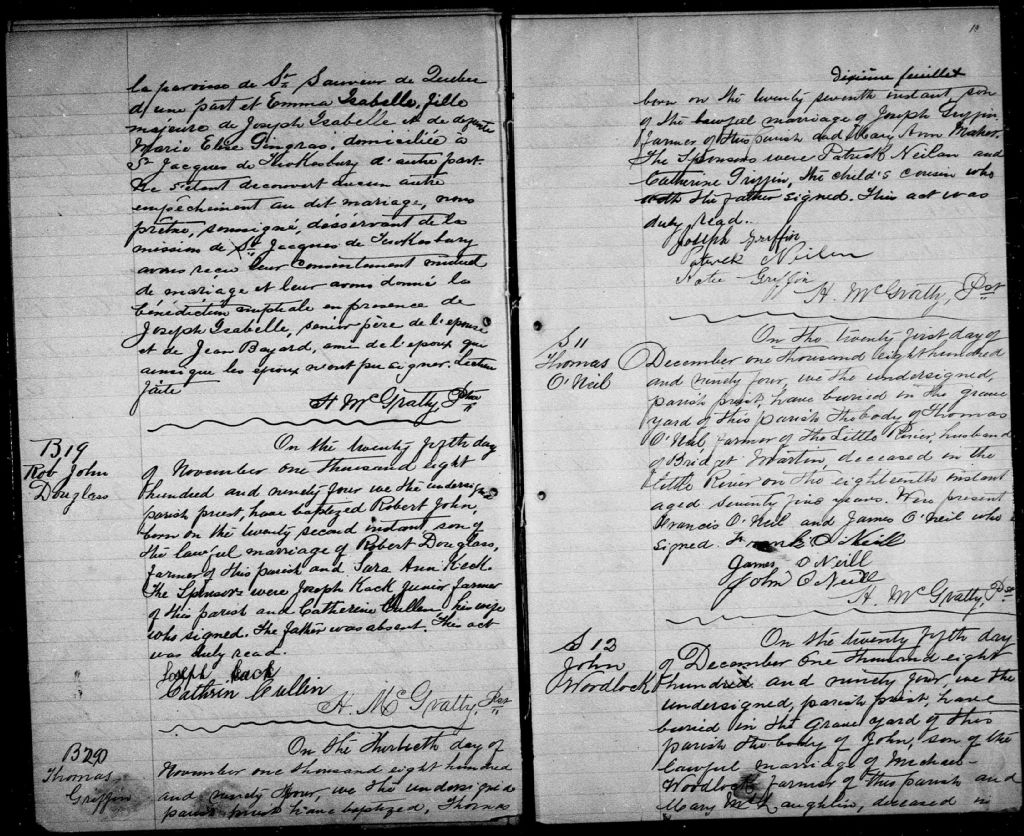 la paroisse de St Sauveur de Quebec
d'une part et Emma Isabelle, fille
majeure de Joseph Isabelle et de defunte
Marie Elise Gingras, domiciliée à
St Jacques de Tewkesbury d'autre part.
Ne s'étant decouvert aucun autre
empêchement au dit mariage, nous
prêtre, soussigné, désservant de la
mission de St Jacques de Tewkesbury
avons reçu leur consentement mutuel
de mariage et leur avons donné la
bénédiction nuptiale en presence de
Joseph Isabelle, senior père de l'epouse
et de Jean Bayard, ami de l'epoux qui
ainsi que les epoux n'ont pu signer. Lecture
faite
H. McGratty, Ptre
B 19
Rob John
Douglass
On the twenty fifth day
of November one thousand eight
hundred and ninety four we the undersigned
parish priest, have baptized Robert John,
born on the twenty second instant son of
the lawful marriage of Robert Douglass,
farmer of this parish and Sara Ann Keck.
The Sponsors were Joseph Kack Junior farmer
of this parish and Catherine Cullen, his wife
who signed. The father was absent. This act
was duly read.
Joseph Kack
Cathrin Cullin
H. McGratty, Pst
B 20
Thomas
Griffin
On the thirtieth day of
November one thousand eight hundred
and ninety four, we the undersigned
parish priest have baptized, Thomas
10
dixième feuillet
born on the twenty seventh instant, son
of the lawful marriage of Joseph Griffin,
farmer of this parish and Mary Ann Maher.
The Sponsors were Patrick Neilan and
Catherine Griffin, the child's cousin who
with the father signed. This act was
duly read.
Joseph Griffin
Patrick Neilan
Katie Griffin
H. McGratty, Pst
S 11
Thomas
O'Neil
On the twenty first day of
December one thousand eight hundred
and ninety four, we the undersigned,
parish priest, have buried in the grave
yard of this parish the body of Thomas
O'Neil farmer of the Little River, husband
of Bridget Martin, deceased in the
little River on the eighteenth instant
aged seventy five years. Were present
Francis O'Neil and James O'Neil who
signed. Frank O Neill
James O'Neill
John O'Neill
H. McGratty, Pst
S 12
John
Woodlock
On the twenty fifth day
of December one thousand eight
hundred and ninety four we the
undersigned, parish priest, have
buried in the grave yard of this
parish the body of John, son of the
lawful marriage of Michael
Woodlock farmer of this parish and
Mary McLaughlin, deceased in